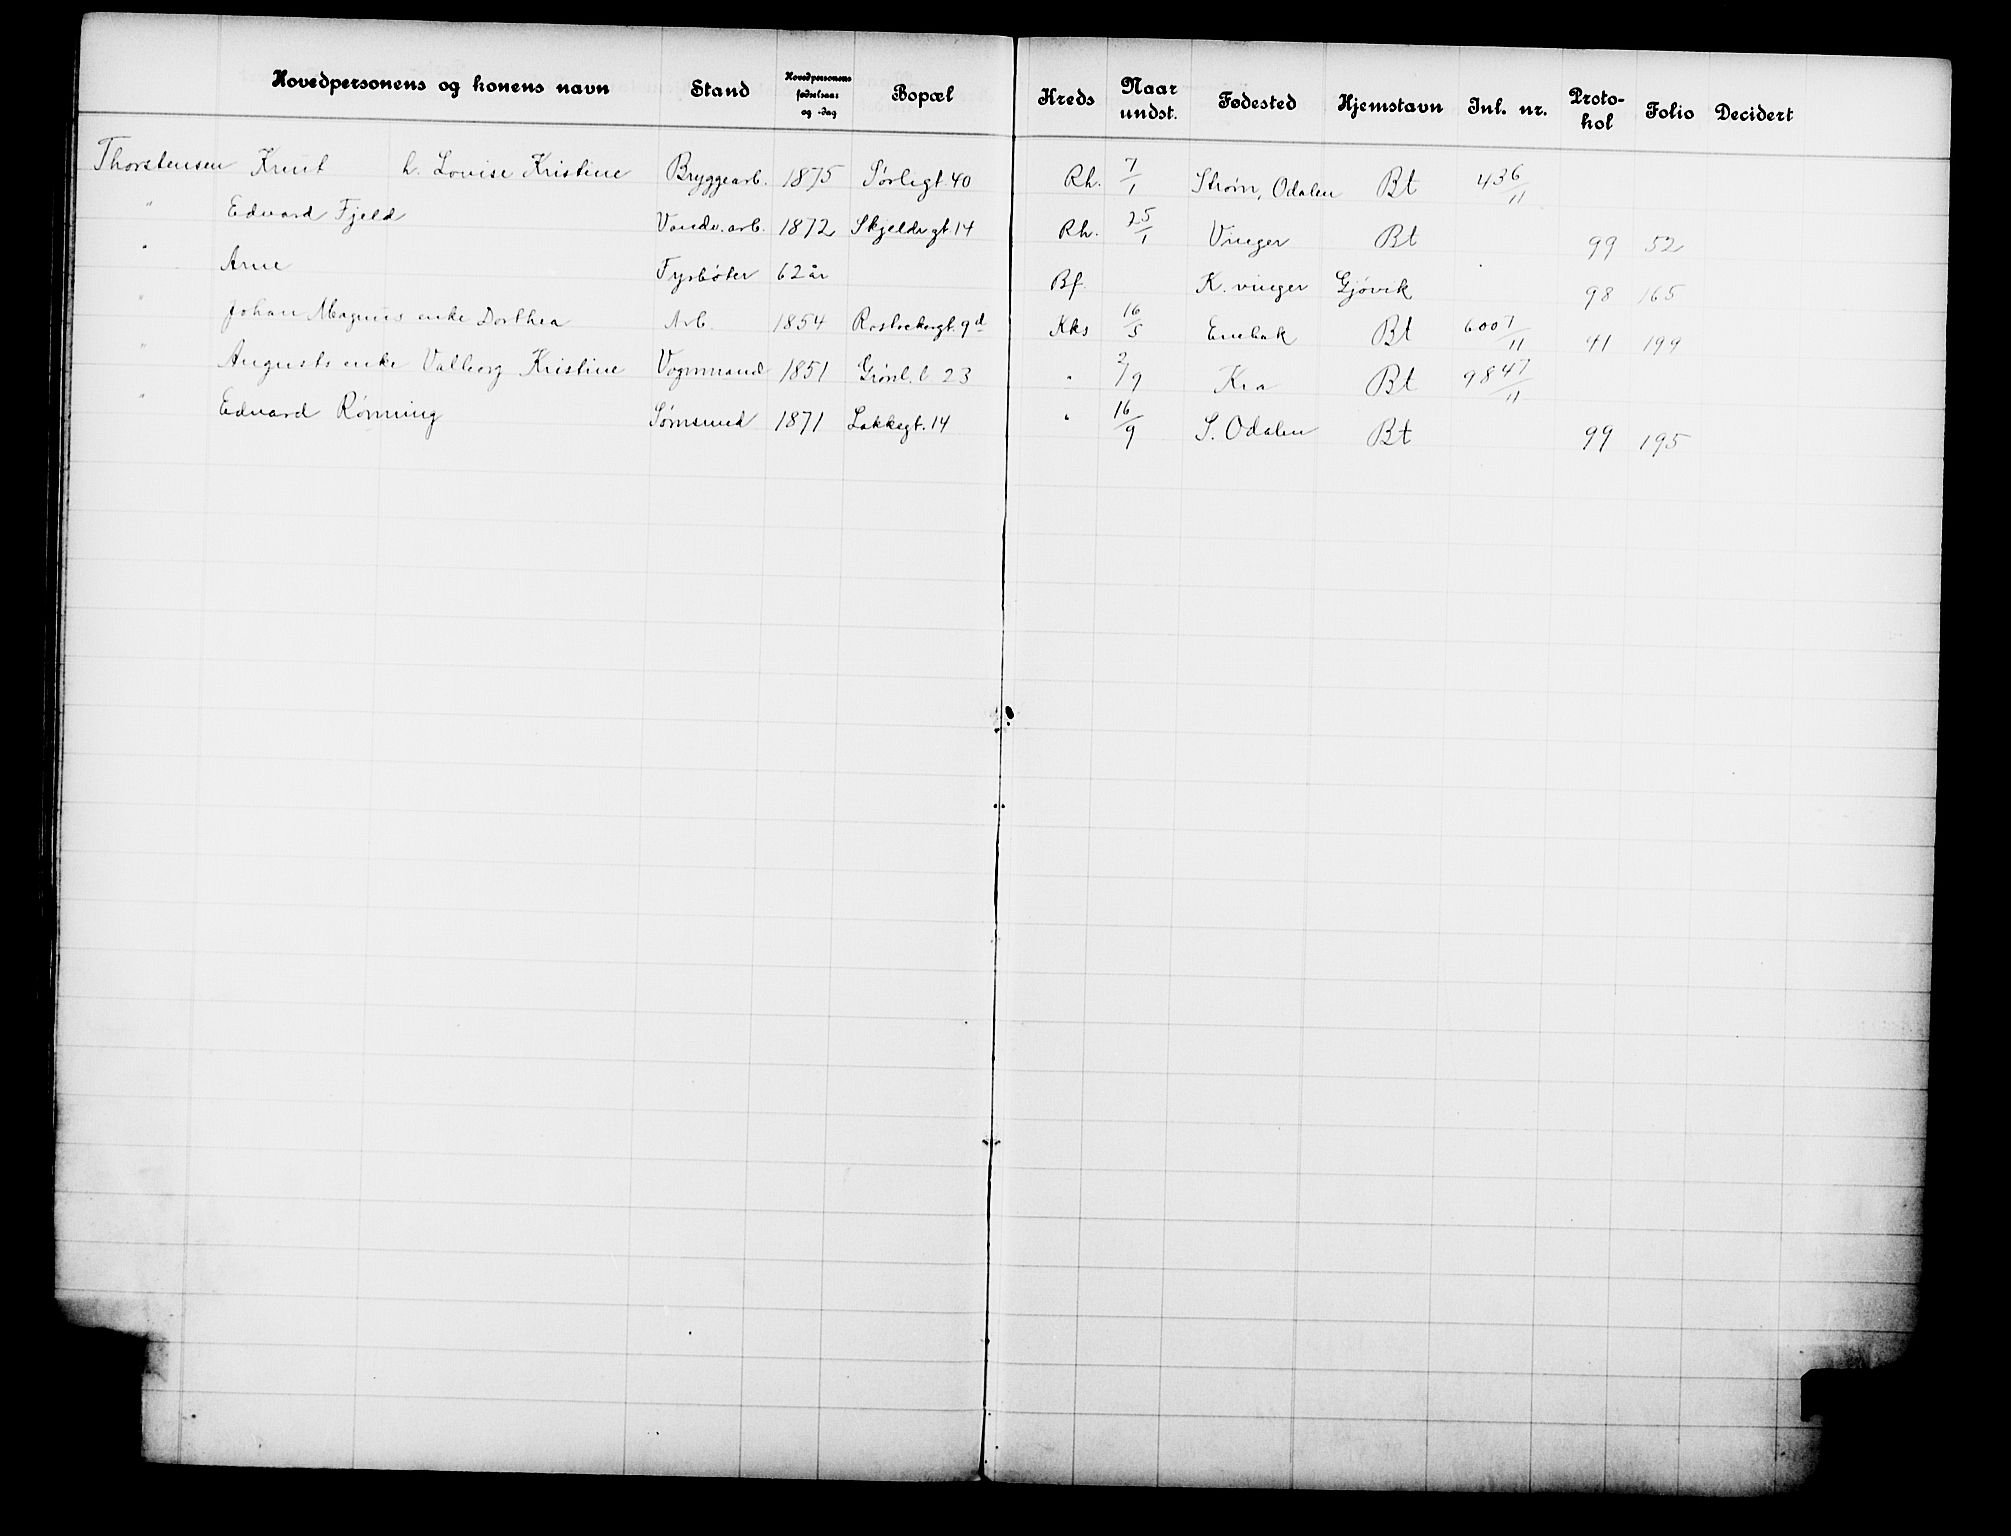 Hovedpersonens og konens navn Stand Hovedpersonens fødselsaar og -dag Bopæl Kreds Naar undst. Fødested Hjemstavn Inl. nr. Protokol Folio Decidert
Thorstensen Knut h. Lovise Kristine Bryggearb. 1875 Sørligt. 40 Rh. 7/1 Strøm, Odalen Bt 436/11
" Edvard Fjeld Vandv. arb. 1872 Skjeldrgt 14 Rh. 25/1 Vinger Bt 99 52
" Arne Fyrbøter 62 år Bf. K. vinger Gjøvik 98 165
" Johan Magnus enke Dorthea Arb. 1854 9d Kks 16/5 Enebak Bt 6007/11 41 199
" Augusts enke Valborg Kristine Vognmand 1851 Grønl. l 23 " 2/9 Kra Bt 9847/11
" Edvard Rønning Tømsmed 1871 Lakkegt. 14 " 16/9 S. Odalen Bt 99 195